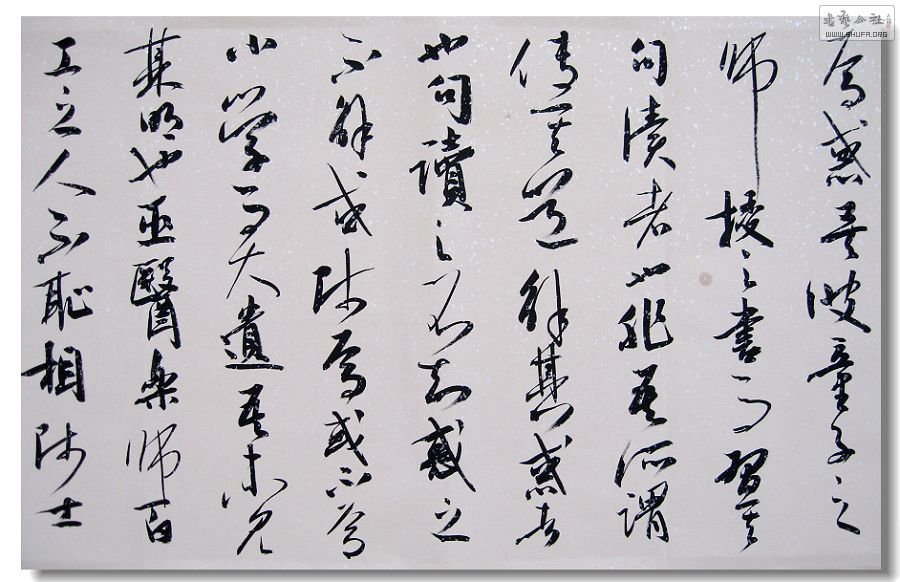 焉惑矣彼童子之
師授之書而習其
句讀者也非吾所謂
傳其道解其惑者
也句讀之不知惑之
不解或師焉或不焉
小學而大遺吾未見
其明也巫醫樂師百
工之人不恥相師士
書藝公社
WWW.SHUFA.ORG